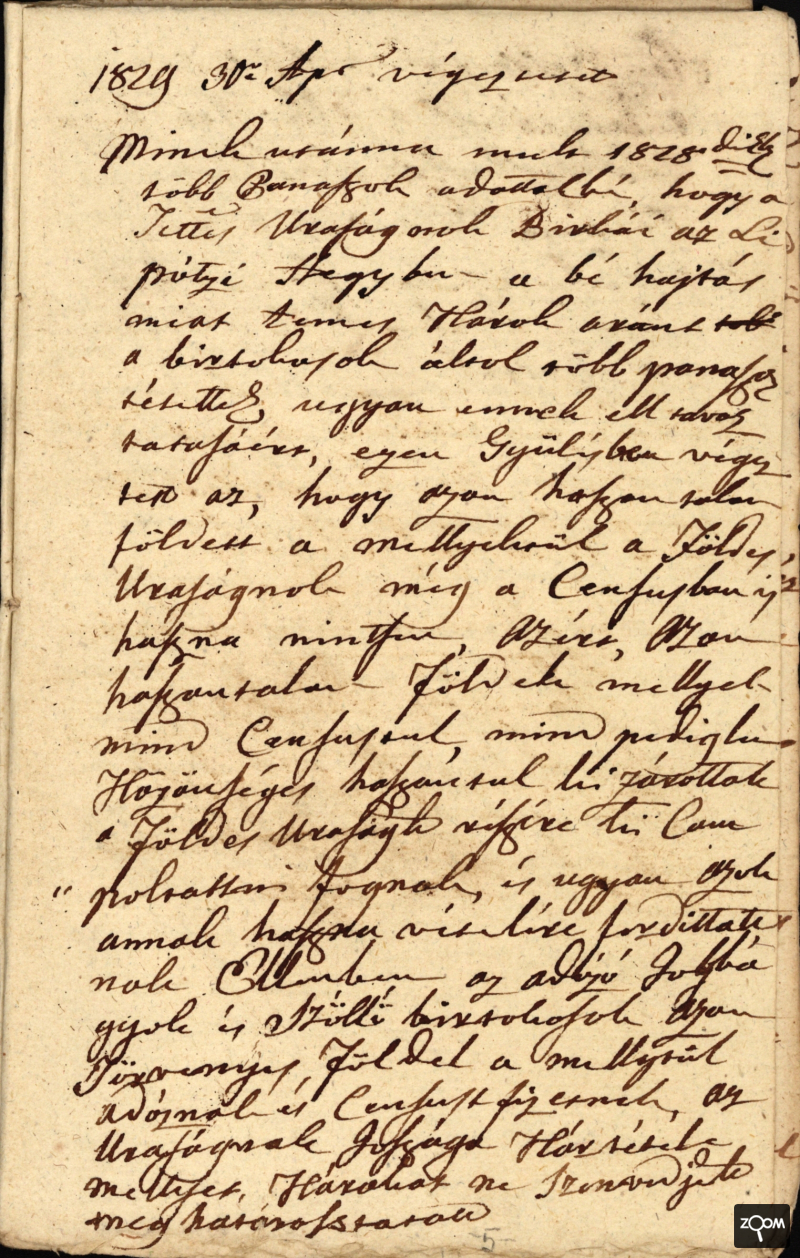 1829 30a Apr végeztetet
Minek utánna mult 1828dik
több Panaszok adattak bé, hogy a
Tettes Uraságnok Birkái az Li
pótzi Hegyben a bé hajtás
miat temes Károk aránt tob
a birtokosok által több panasz
tétettek, ugyan ennek ell távoz
tatásáért, ezen Gyülésben végez
tett az, hogy azon haszontalan
földett a mellyekrül a Földes
Uraságnok még a Censusban is
haszna nintsen, azért, azon
haszontalan Földek mellyek
mind Censustul, mind pediglen
Közönséges haszontul ki zárottak
a Földes Uraságh részére ki Cam
poltattni fognak, és ugyan azok
annak haszna vételére fordittat
nok Ellenben az adózó Jobbá
gyok és Szöllö birtokosok azon
Törvenyes Földel a mellytül
adóznak és Censust fizetnek, az
Uraságnak Jószága Kártétele
mellyet, Károkat ne szenvedjek
meg határosztatott
5
ZOOM